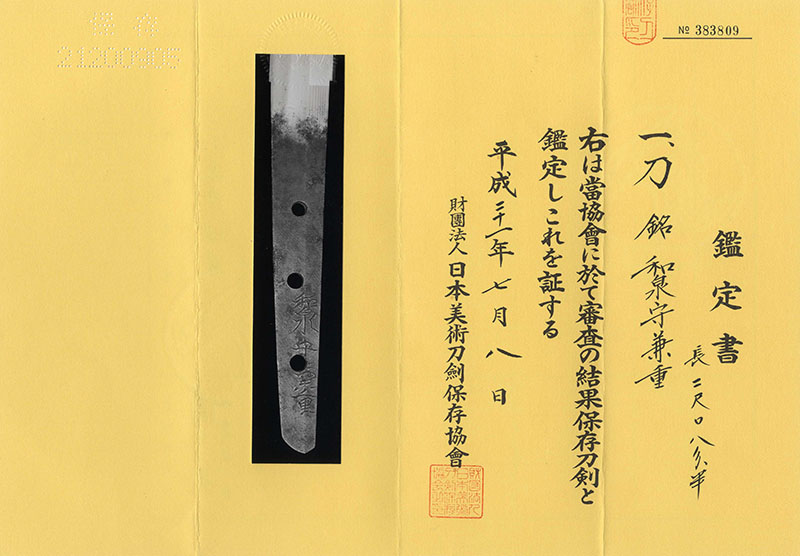 保存
21200905
№ 383809
鑑定書
長二尺〇八分半
一、刀 銘 和泉守兼重
右は當協會に於て審査の結果保存刀剣と
鑑定しこれを証する
平成二十一年七月八日
財團法人日本美術刀劍保存協會